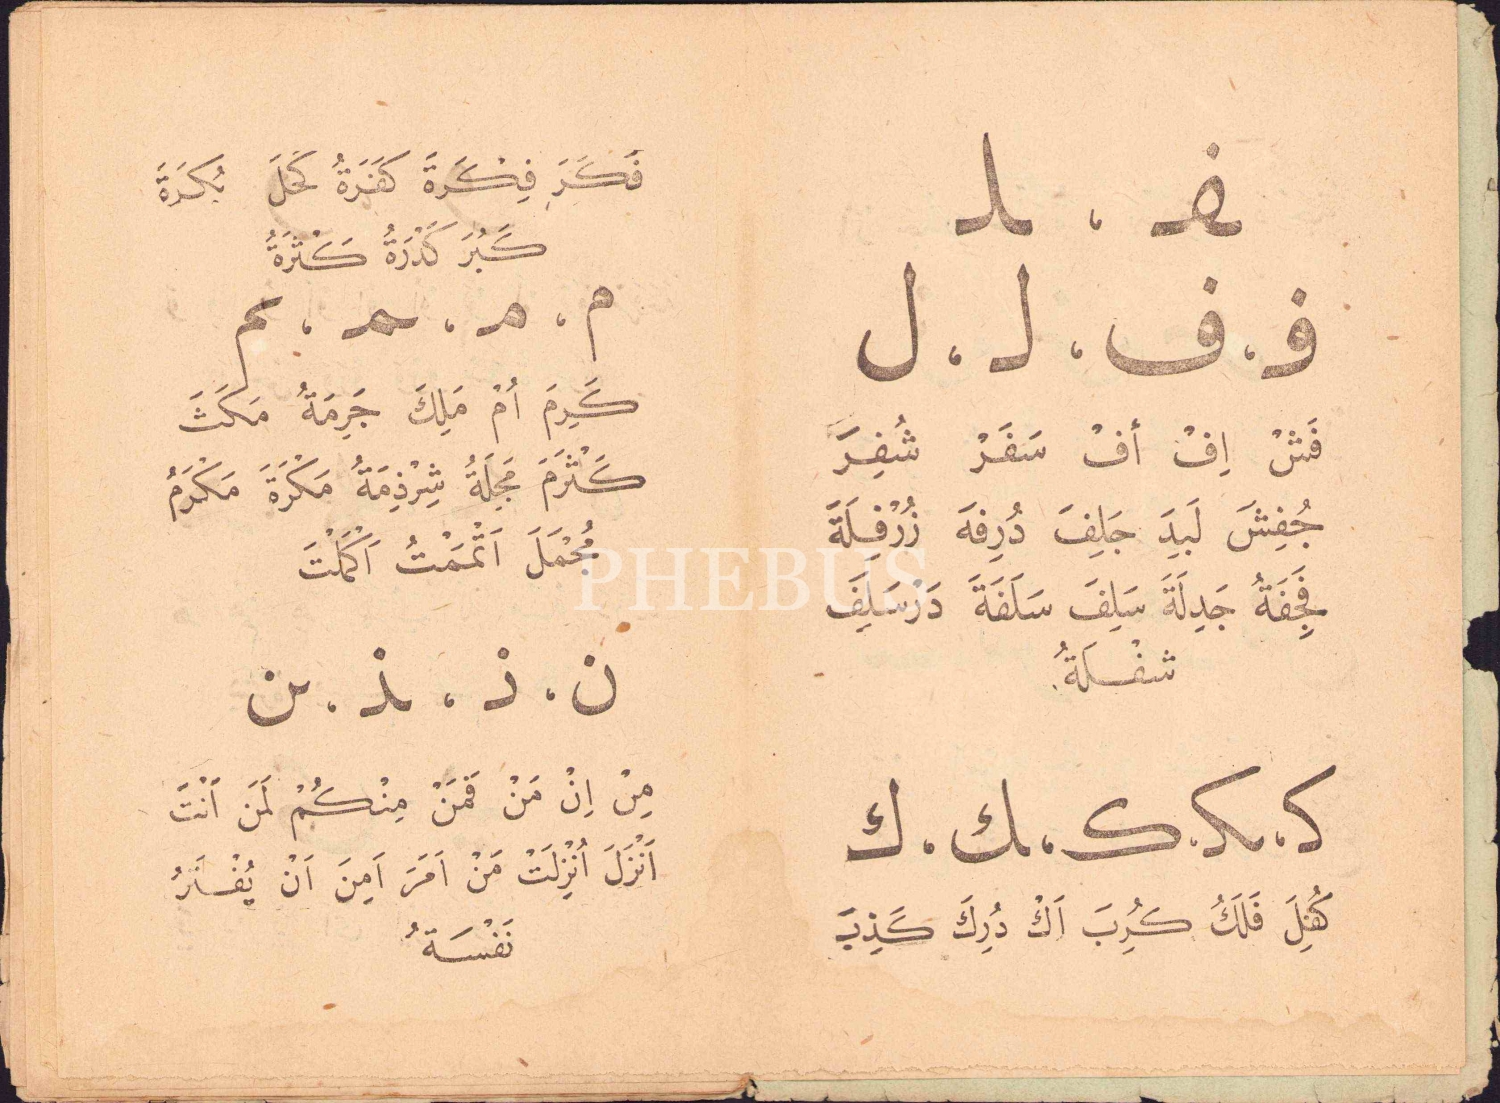 ف ، لـ
ف ، ف ، ل ، ل
فَشْ اِفْ أفْ سَفَرْ شُفِرَّ
جُفِشَ لَبِدَ جَلِفَ دُرِفَه زُرْفِلَةً
فَجِفَةُ جَدِلَةً سَلِفَ سَلَفَةً دَرْسَلِفَ
شفْلَةُ
ك ، ك ، ك ، ك ، ك
كُهِلَ فَلَكُ كَرُبَ اَكْ دُرِكَ كَذِبَ
فَكَّرَ فِكْرَةً كَفَرَةُ كَحَلَ بُكْرَةً
كَبُرَ كَدْرَةُ كَثْرَةُ
م ، م ، م ، م
كَرِمَ اُمْ مَلِكَ جَرِمَةُ مَكَثَ
كَثْرَمَ مَجِلَةُ شِرْذِمَةُ مَكْرَةً مَكْرَمُ
مُجْمَلَ اَتْمَمْتُ اَكْمَلْتَ
PHEBUS
ن ، ن ، ن ، ن
مِنْ اِنْ مَنْ فَمَنْ مِنْكُمْ لَمَن اَنْتَ
اَنْزَلَ اُنْزِلَتْ مَنْ اَمَرَ اَمِنَ اَنْ
نَفْسَةُ